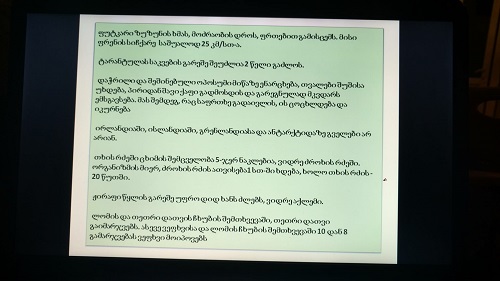 ფუტკარი ზუზუნის ხმას, მოძრაობის დროს, ფრთებით გამოსცემს. მისი
ფრენის სიჩქარე საშუალოდ 25 კმ/სთ-ა.
ტარანტულას საკვების გარეშე შეუძლია 2 წელი გაძლოს.
დაჭრილი და შეშინებული ოპოსუმი მიწაზე ენარცხება, თვალები შუშისა
უხდება, პირიდან შავი ქაფი გადმოსდის და გარეგნულად მკვდარს
ემსგავსება. მას შემდეგ, რაც საფრთხე გადაივლის, ის ცოცხლდება და
იკურნება
ირლანდიაში, ისლანდიაში, გრენლანდიასა და ანტარქტიდაზე გველები არ
არიან.
თხის რძეში ცხიმის შემცველობა 5-ჯერ ნაკლებია, ვიდრე ძროხის რძეში.
ორგანიზმის მიერ, ძროხის რძის ათვისება 1 სთ-ში ხდება, ხოლო თხის რძის -
20 წუთში.
ჟირაფი წყლის გარეშე უფრო დიდ ხანს ძლებს, ვიდრე აქლემი.
ლომის და თეთრი დათვის ჩხუბის შემთხვევაში, თეთრი დათვი
გაიმარჯვებს. ასევე ვეფხვისა და ლომის ჩხუბის შემთხვევაში 10 დან 8
გამარჯვებას ვეფხვი მოიპოვებს